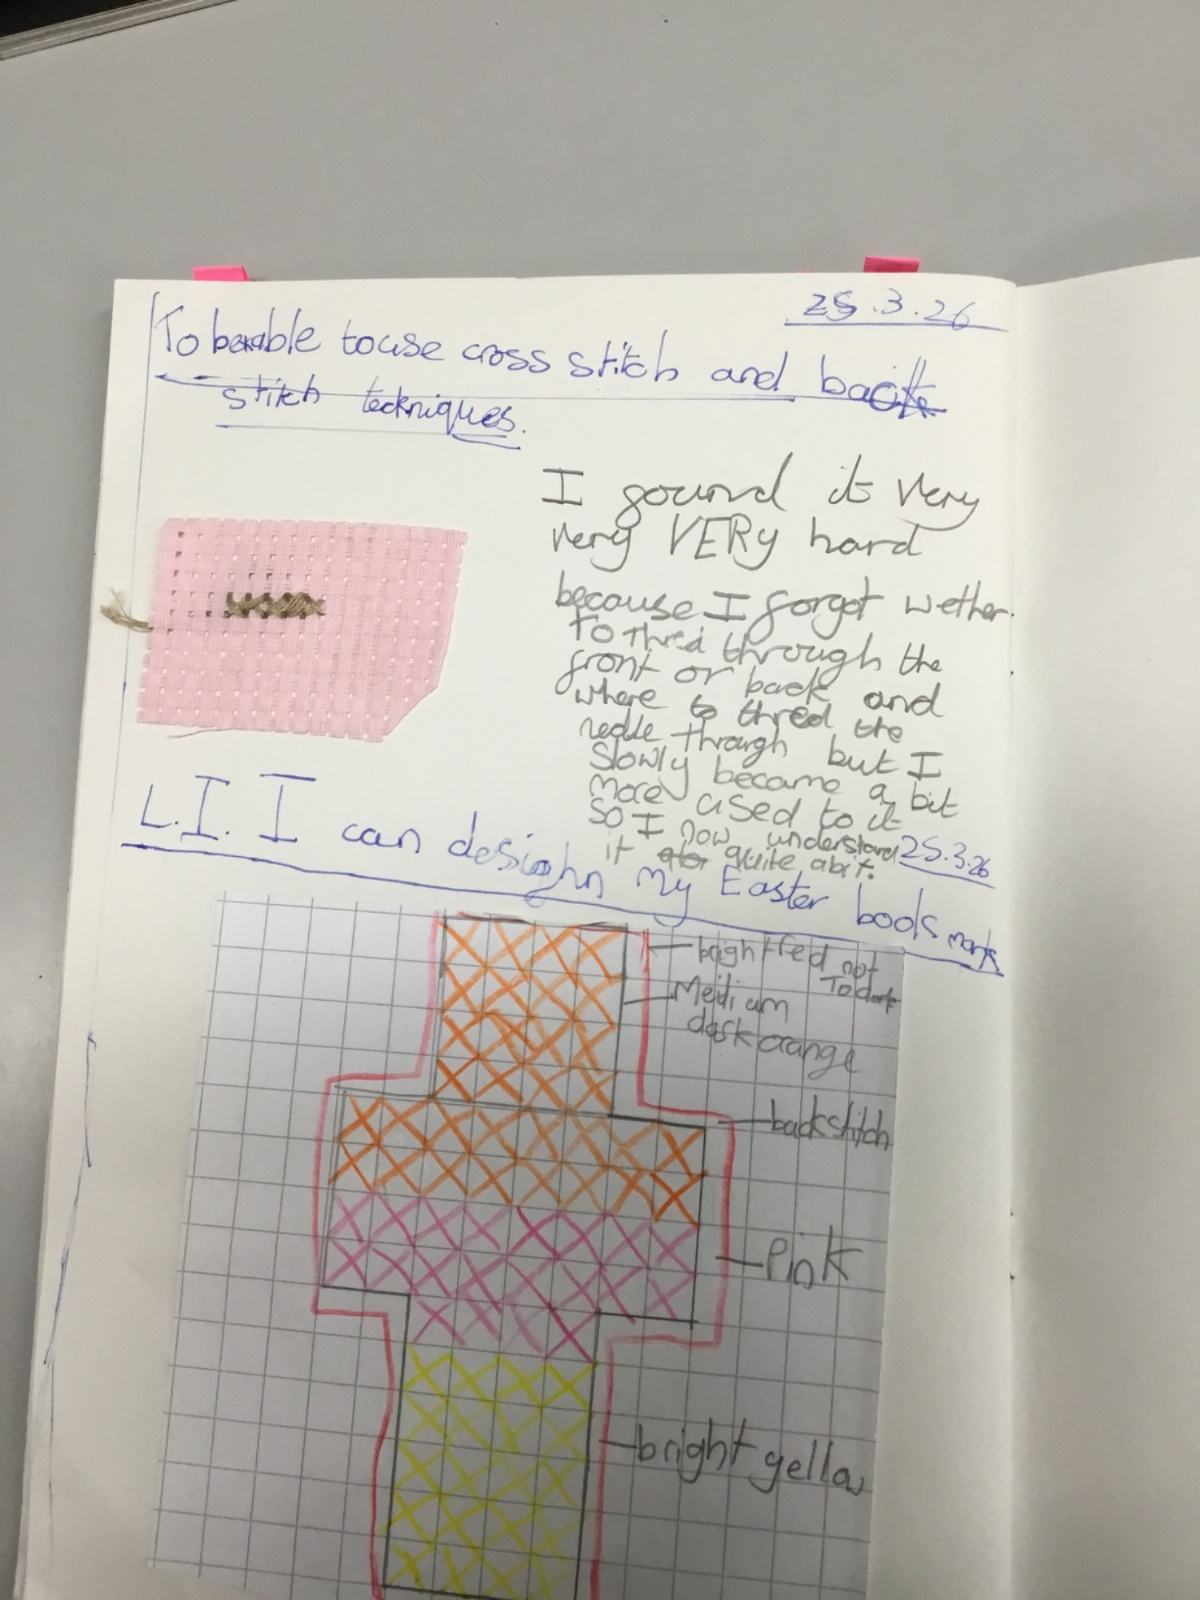 25.3.26
To be able to use cross stitch and back
stitch teckniques.
I gound it very
very VERY hard
because I forgot wether
To thred through the
front or back and
where to thred the
nedle through but I
slowly became a bit
more used to it
so I now understand
it quite a bit.
25.3.26
L.I. I can desighn my Easter book mark
bright red not
To dark
Medium
dark orange
backstitch
Pink
bright yellow